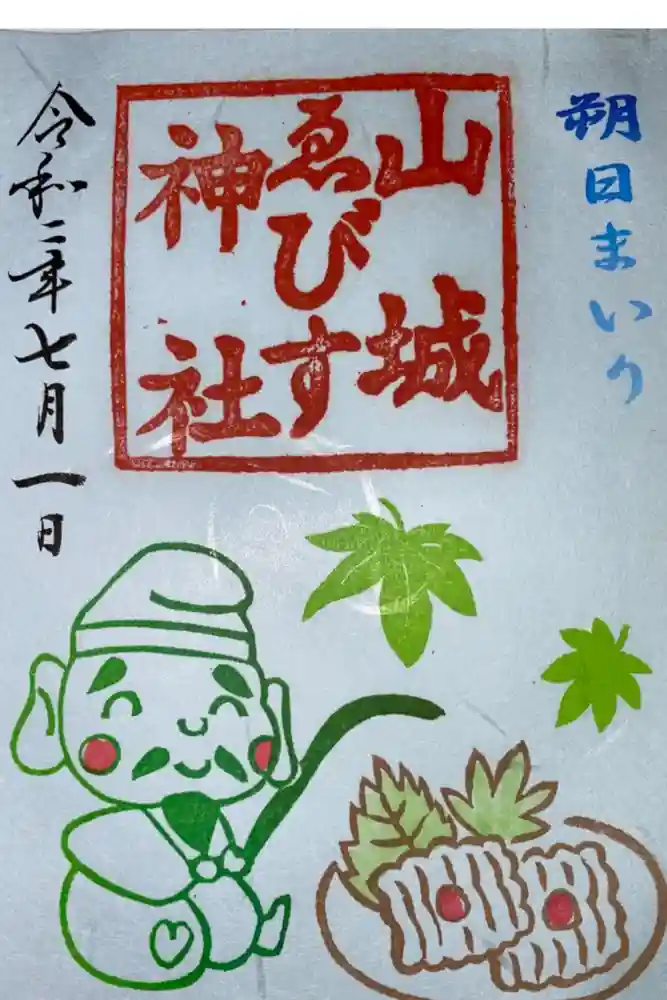 朔日まいり
山城
ゑびす
神社
令和二年七月一日